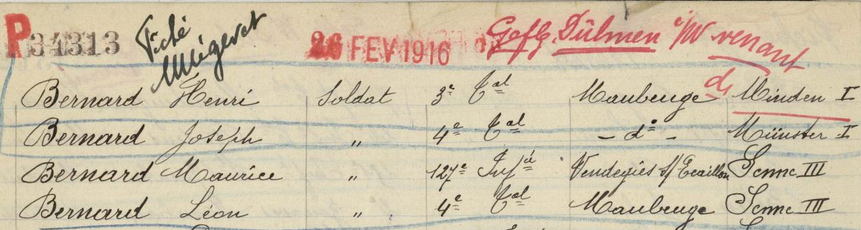 P 34313 Fiché 26 FEV 1916 Gefg. Dülmen i/W venant de
Bernard Henri Soldat 3e Cal Maubenge Minden I
Bernard Joseph " 4e Cal - do - Münster I
Bernard Maurice " 127e Infie Vendegies s/Ecaillon Senne III
Bernard Léon " 4e Cal Maubenge Senne III